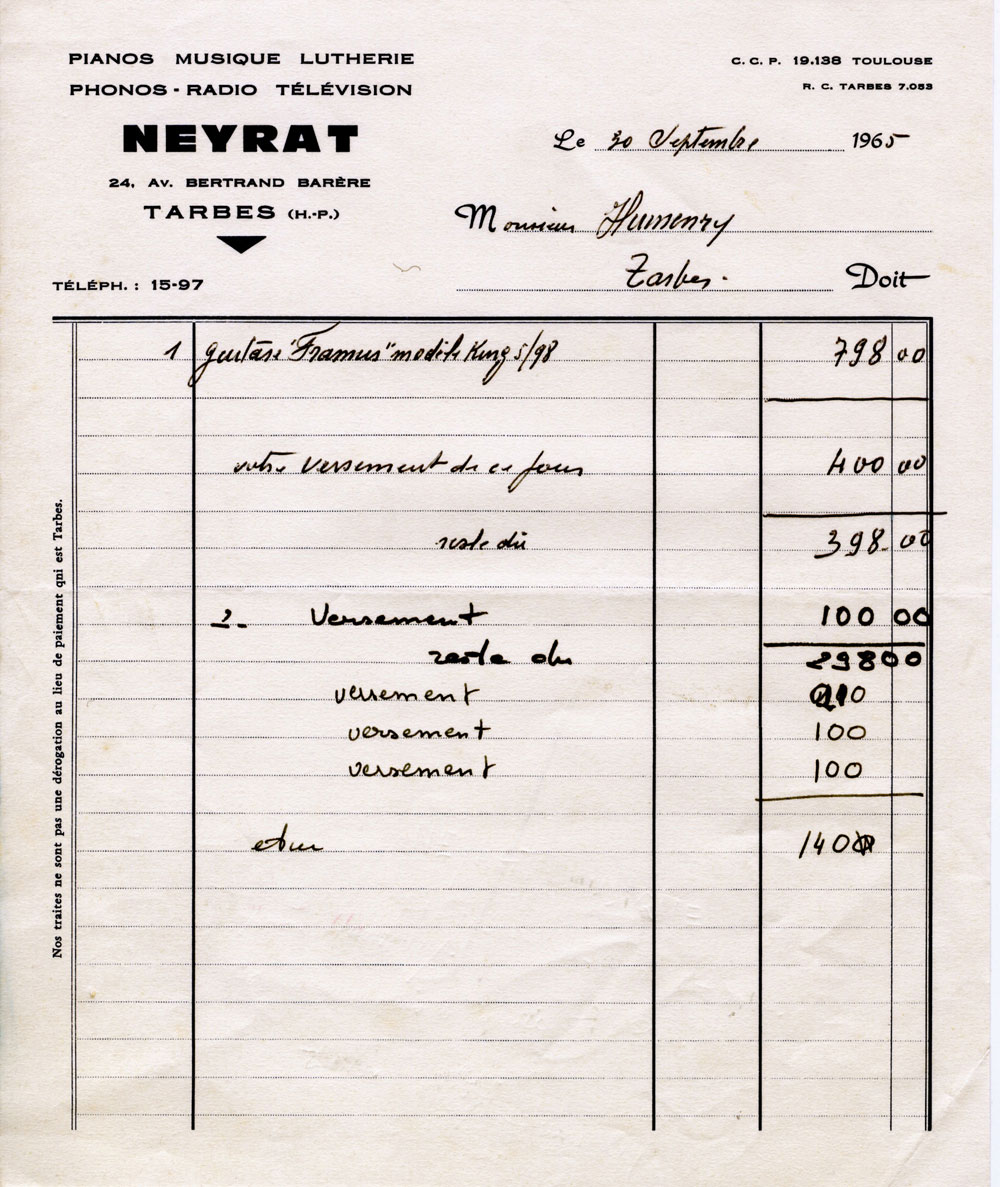 PIANOS MUSIQUE LUTHERIE
PHONOS - RADIO TÉLÉVISION
NEYRAT
24, Av. BERTRAND BARÈRE
TARBES (H.-P.)
TÉLÉPH. : 15-97
C. C. P. 19.138 TOULOUSE
R. C. TARBES 7.053
Le 30 Septembre 1965
Monsieur Humenry
Tarbes. Doit
1 guitare "Framus" modèle King 5/98 798 00
votre versement de ce jour 400 00
reste dû 398 00
2- Versement 100 00
reste du 298 00
versement
versement 100
versement 100
140
Nos traites ne sont pas une dérogation au lieu de paiement qui est Tarbes.